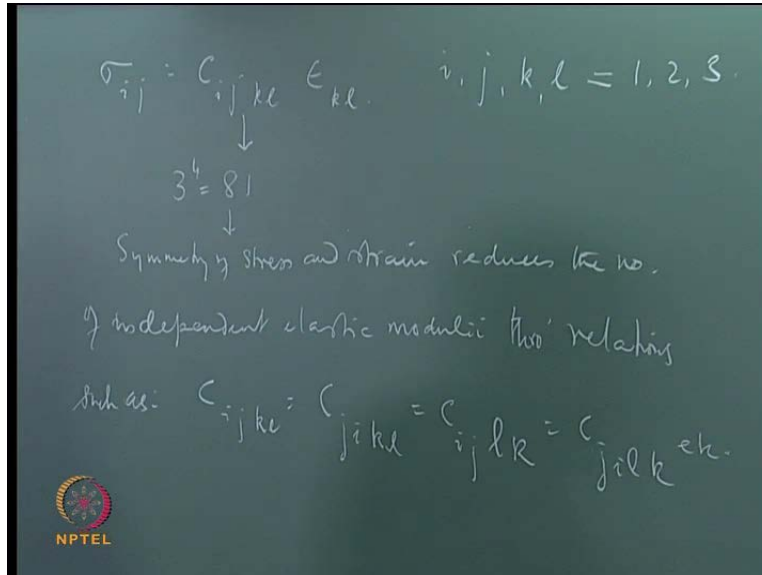 σ_ij = C_ijkl ε_kl. i, j, k, l = 1, 2, 3.
↓
3⁴ = 81
↓
Symmetry of stress and strain reduces the no.
of independent elastic modulii thro' relations
such as: C_ijkl = C_jikl = C_ijlk = C_jilk etc.
NPTEL